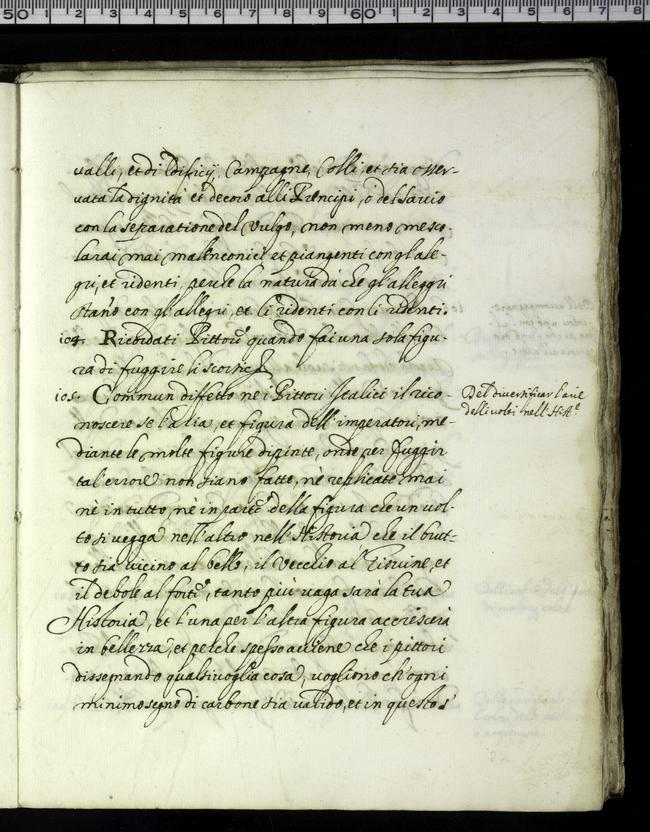 valli, et di Edificij, Campagne, Colli, et sia osser-
vata la dignità et decoro alli Prencipi, ò del savio
con la separatione del vulgo, non meno mesco-
larai mai malenconici et piangenti con gl'ale-
gri, et ridenti, perche la natura dà che gl'alleggri
stano con gl'allegri, et li ridenti con li ridenti.
104. Ricordati Pittore quando fai una sola figu-
ra di fuggire li scorici
105. Commun diffetto ne i Pittori Italici il rico-
noscere se l'aria, et figura dell'imperatori, me-
diante le molte figure dipinte, onde per fuggir
tal errore non siano fatte, nè replicate mai
nè in tutto, nè in parte della figura che un vol-
to si vegga nell'altro nell'Historia che il brut-
to sia vicino al bello, il Vecchio al Giovine, et
il debole al forte, tanto più vaga sarà la tua
Historia, et l'una per l'altra figura accrescerà
in bellezza, et perche spesso aviene che i pittori
dissegnando qualsivoglia cosa, vogliono ch'ogni
minimo segno di carbone sia valido, et in questo s'
Del diversificar l'arie
delli volti nell'Hist.e